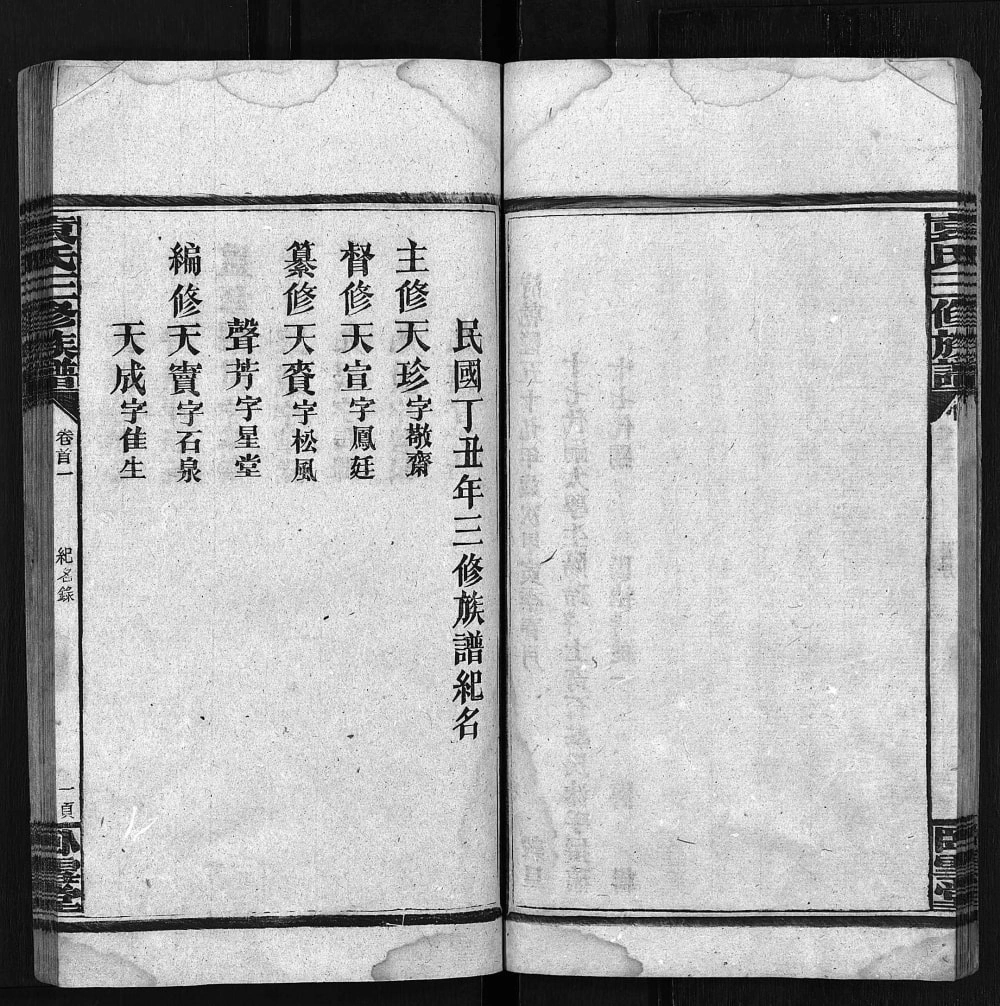 民國丁丑年三修族譜紀名
主修天珍字敬齋
督修天宣字鳳廷
纂修天賚字松風
聲芳字星堂
編修天寶字石泉
天成字佳生
袁氏三修族譜
卷首一
紀名錄
一頁
臥雲堂